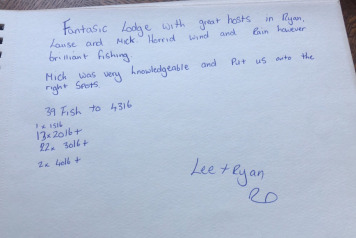 Fantasic Lodge with great hosts in Ryan,
Lause and Mick Horrid wind and Rain however
brilliant fishing.
Mich was very knowledgeable and Put us onto the
right spots
39 Fish to 43lb
1 x 15lb
13x20lb+
22x 30lb+
2x 40lb+
Lee + Ryan